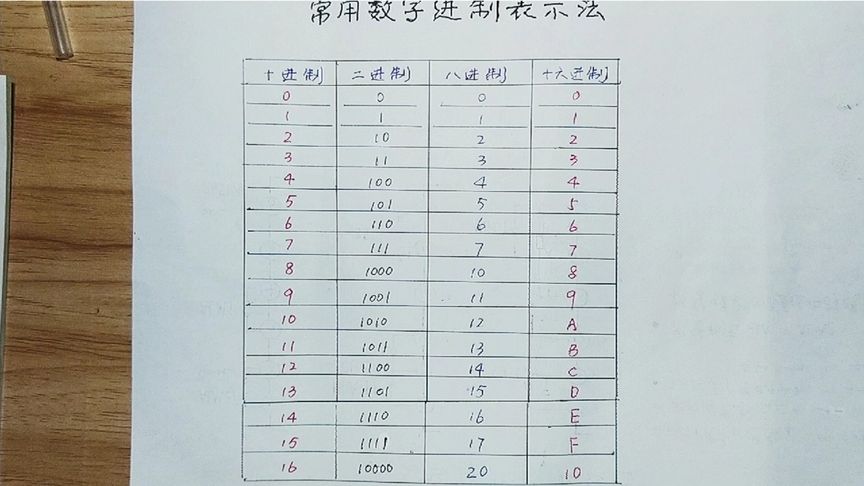 常用数字进制表示法
十进制 二进制 八进制 十六进制
0 0 0 0
1 1 1 1
2 10 2 2
3 11 3 3
4 100 4 4
5 101 5 5
6 110 6 6
7 111 7 7
8 1000 10 8
9 1001 11 9
10 1010 12 A
11 1011 13 B
12 1100 14 C
13 1101 15 D
14 1110 16 E
15 1111 17 F
16 10000 20 10